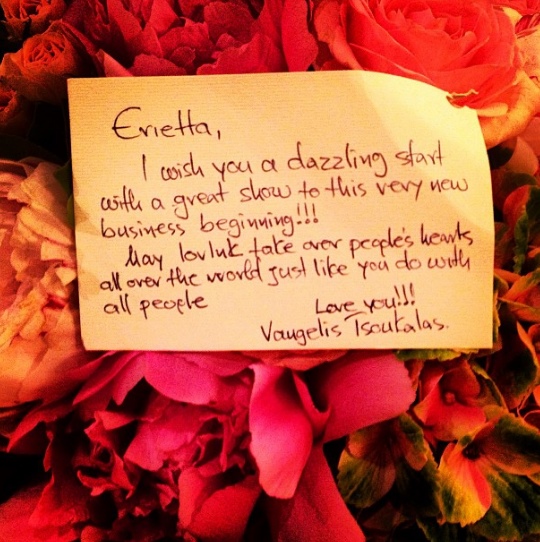 Erietta,
I wish you a dazzling start
with a great show to this very new
business beginning!!!
May lovluk take over people's hearts
all over the world just like you do with
all people
Love you!!!
Vaugelis Tsoukalas.